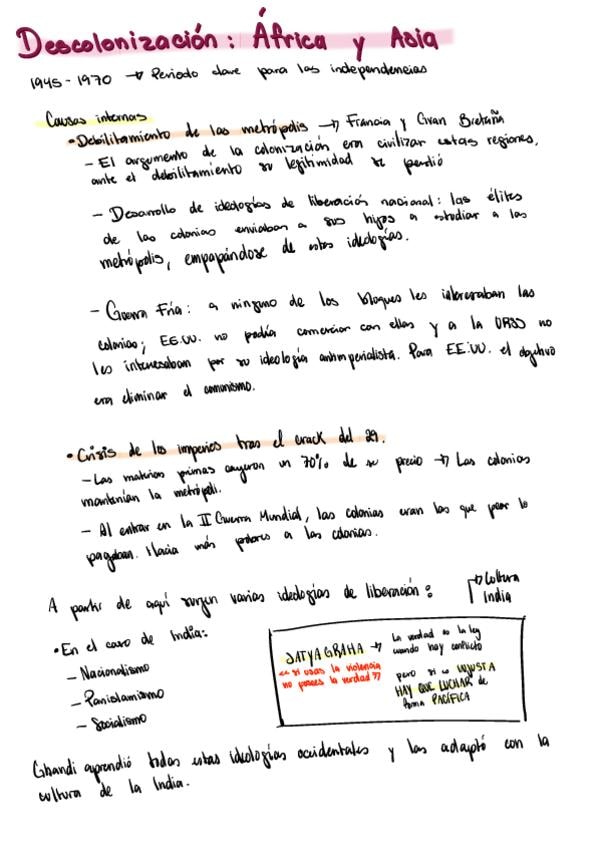 Descolonización: África y Asia
1945-1970 → Periodo clave para las independencias
Causas internas
• Debilitamiento de las metrópolis → Francia y Gran Bretaña
- El argumento de la colonización era civilizar estas regiones,
ante el debilitamiento su legitimidad se perdió
- Desarrollo de ideologías de liberación nacional: las élites
de las colonias enviaban a sus hijos a estudiar a las
metrópolis, empapándose de estas ideologías.
- Guerra Fría: a ninguno de los bloques les interesaban las
colonias; EE.UU. no podía comerciar con ellas y a la URSS no
les interesaban por su ideología antimperialista. Para EE.UU. el objetivo
era eliminar el comunismo.
• Crisis de los imperios tras el crack del 29.
- Las materias primas cayeron un 70% de su precio → Las colonias
mantenían la metrópoli.
- Al entrar en la II Guerra Mundial, las colonias eran las que peor lo
pagaban. Hacia más pobres a las colonias.
A partir de aquí surgen varias ideologías de liberación:
→ Cultura
India
• En el caso de India:
- Nacionalismo
- Panislamismo
- Socialismo
SATYAGRAHA → La verdad es la ley
cuando hay conflicto
<< si usas la violencia
no posees la verdad >>
pero si es INJUSTA
HAY QUE LUCHAR de
forma PACÍFICA
Ghandi aprendió todas estas ideologías occidentales y las adaptó con la
cultura de la India.